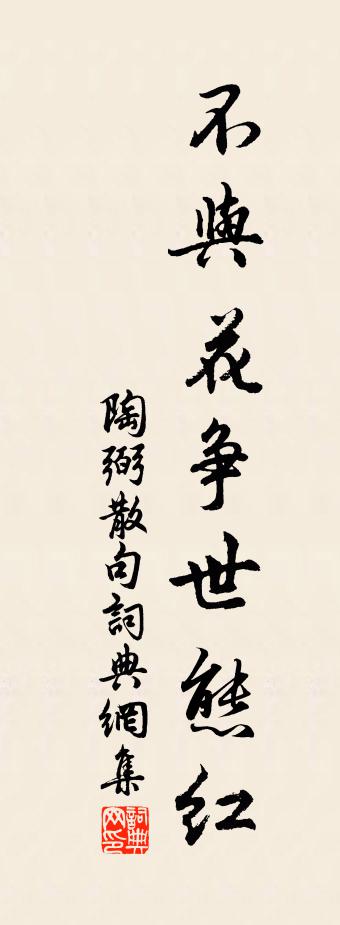 不與花爭世態紅
陶弼散句詞典網集
詞典网印